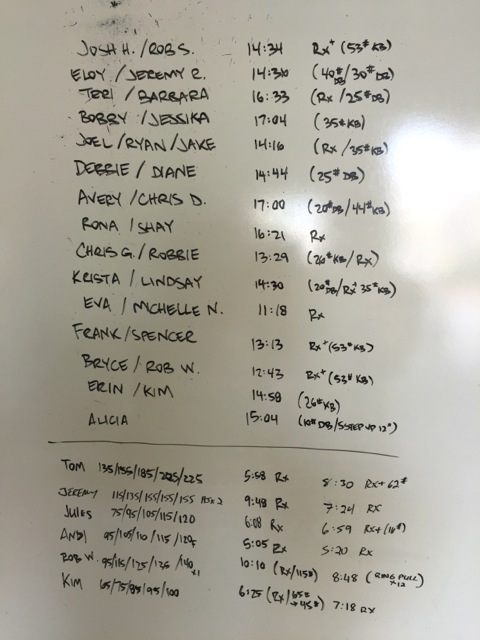 JOSH H. / ROB S. 14:34 RX+ (53# KB)
ELOY / JEREMY R. 14:30 (40# DB/30# DB)
TERI / BARBARA 16:33 (RX / 25# DB)
BOBBY / JESSIKA 17:04 (35# KB)
JOEL / RYAN / JAKE 14:16 (RX / 35# KB)
DEBBIE / DIANE 14:44 (25# DB)
AVERY / CHRIS D. 17:00 (20# DB/44# KB)
RONA / SHAY 16:21 RX
CHRIS G. / ROBBIE 13:29 (26# KB / RX)
KRISTA / LINDSAY 14:30 (20# DB/RX+ 35# KB)
EVA / MICHELLE N. 11:18 RX
FRANK/SPENCER 13:13 RX+ (53# KB)
BRYCE / ROB W. 12:43 RX+ (53# KB)
ERIN / KIM 14:58 (26# KB)
ALICIA 15:04 (10# DB/SSTEP UP 12")
TOM 135/155/185/205/225 5:58 RX 8:30 RX+ 62#
JEREMY 115/135/155/155/155 x 2 9:48 RX 7:24 RX
JULES 75/95/105/115/120 6:08 RX 6:59 RX+ (18#)
ANDI 95/105/110/115/120 5:05 RX 5:20 RX
ROB W. 95/115/125/135/140 x1 10:10 (RX/115#) 8:48 (RING PULL x12)
KIM 65/75/85/95/100 6:25 (RX/65# → 45#) 7:18 RX